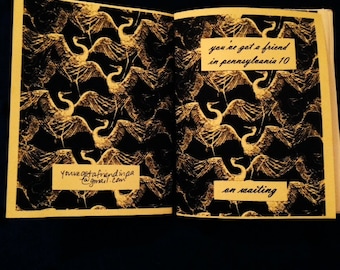 youvegotafriendinpa
@gmail.com
you've got a friend
in pennsylvania 10
on waiting